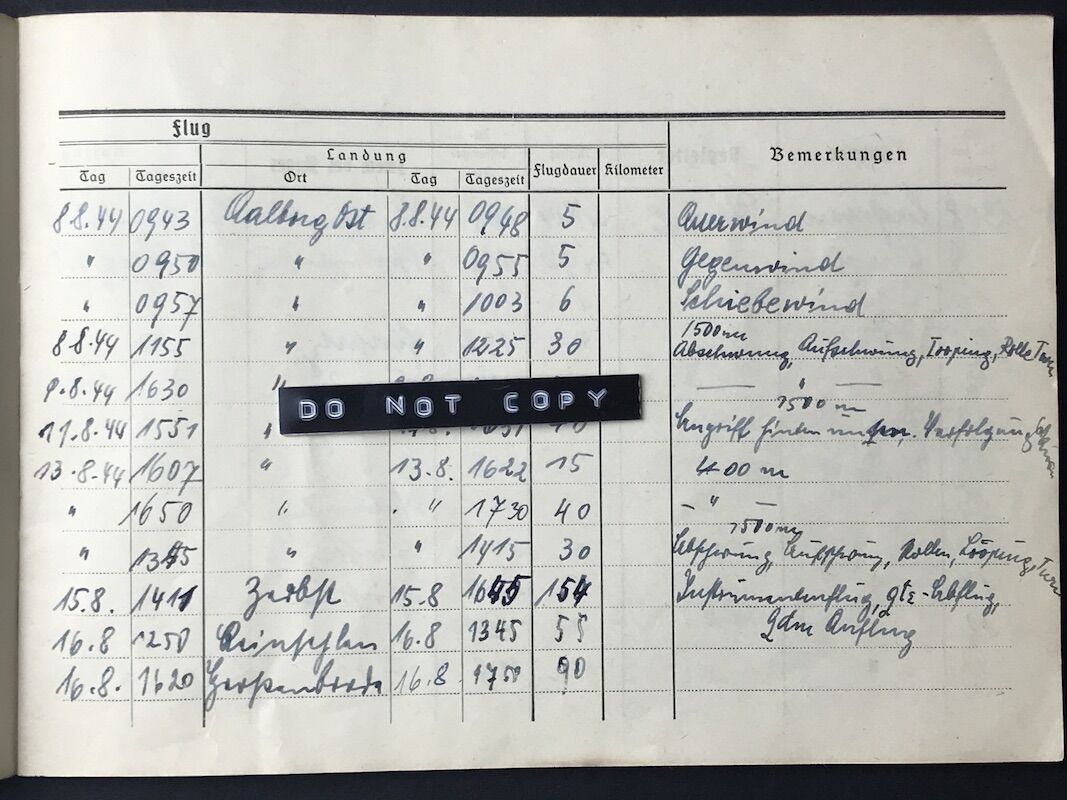 Flug
Landung
Bemerkungen
Tag Tageszeit Ort Tag Tageszeit Flugdauer Kilometer
8.8.44 0943 Aalborg Ost 8.8.44 0948 5 Querwind
" 0950 " " 0955 5 Gegenwind
" 0957 " " 1003 6 Schiebewind
1500 m
8.8.44 1155 " " 1225 30 Abschwung, Aufschwung, Looping, Rolle Turn
9.8.44 1630 " — " —
DO NOT COPY
1500 m
11.8.44 1551 " Angriff hinten unten. Verfolgung
13.8.44 1607 " 13.8. 1622 15 400 m
" 1650 " " 1730 40 — " —
1500 m
" 1345 " " 1415 30 Abschwung, Aufschwung, Rollen, Looping, Turn
15.8. 1411 Zerbst 15.8 1645 154 Instrumentenflug, qte-Abflug,
Qdm Anflug
16.8 1250 16.8 1345 55
16.8. 1620 Großenbrode 16.8 1750 90